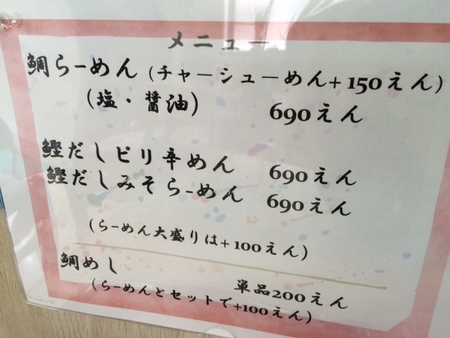 メニュー
鯛らーめん (チャーシューめん+150えん)
(塩・醤油) 690えん
鰹だしピリ辛めん 690えん
鰹だしみそらーめん 690えん
(らーめん大盛りは+100えん)
鯛めし 単品200えん
(らーめんとセットで+100えん)